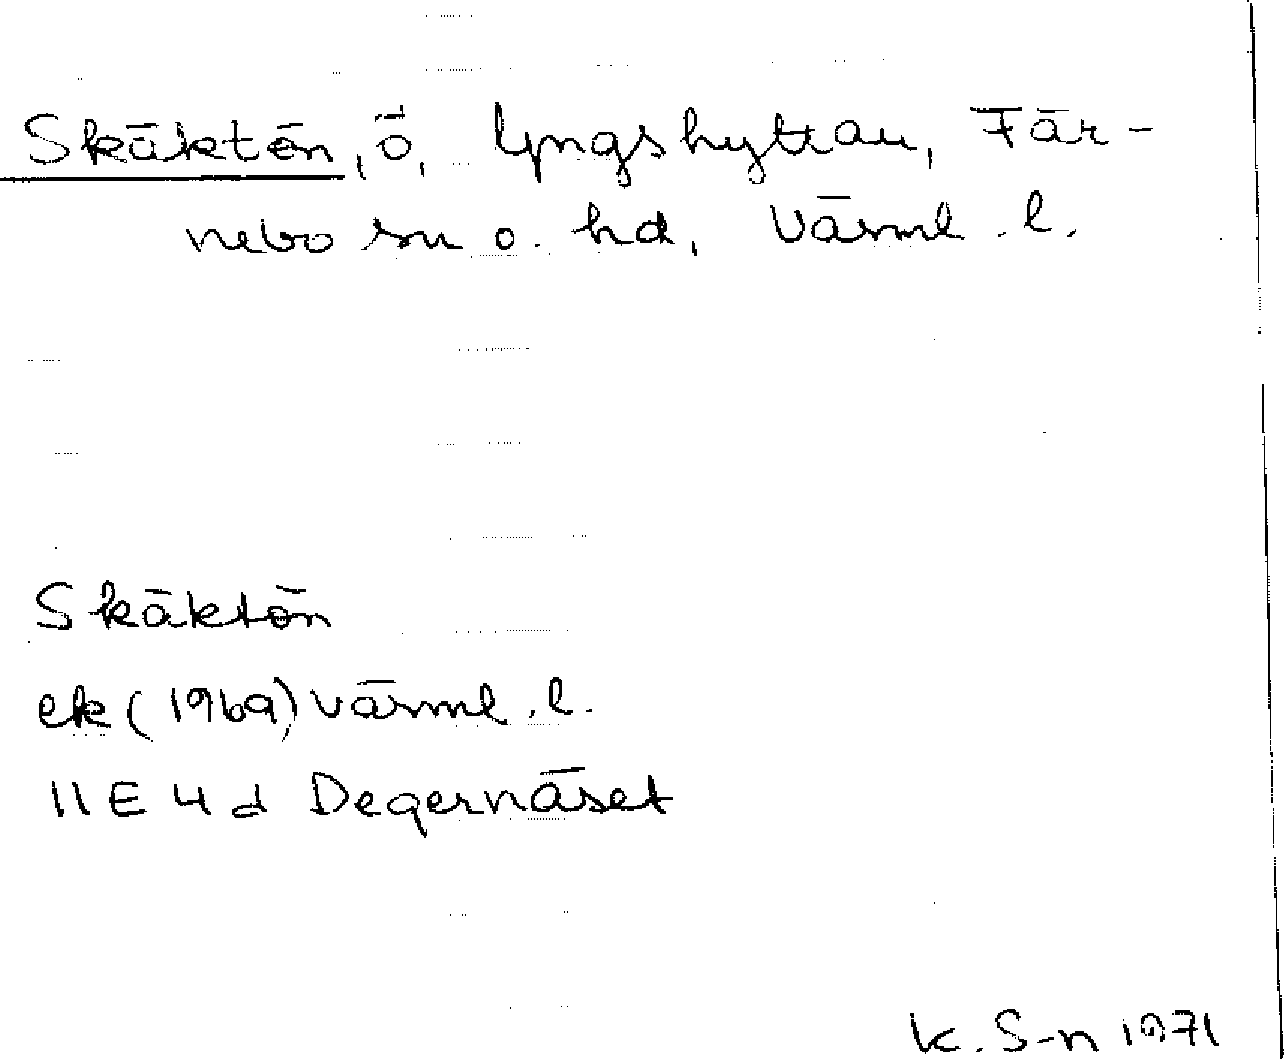 Skäktön, ö, Lyngshyttan, Fär-
nebo sn o. hd, Värml. l.
Skäktön
ek (1969) Värml. l.
11E 4d Degernäset
K. S-n 1971